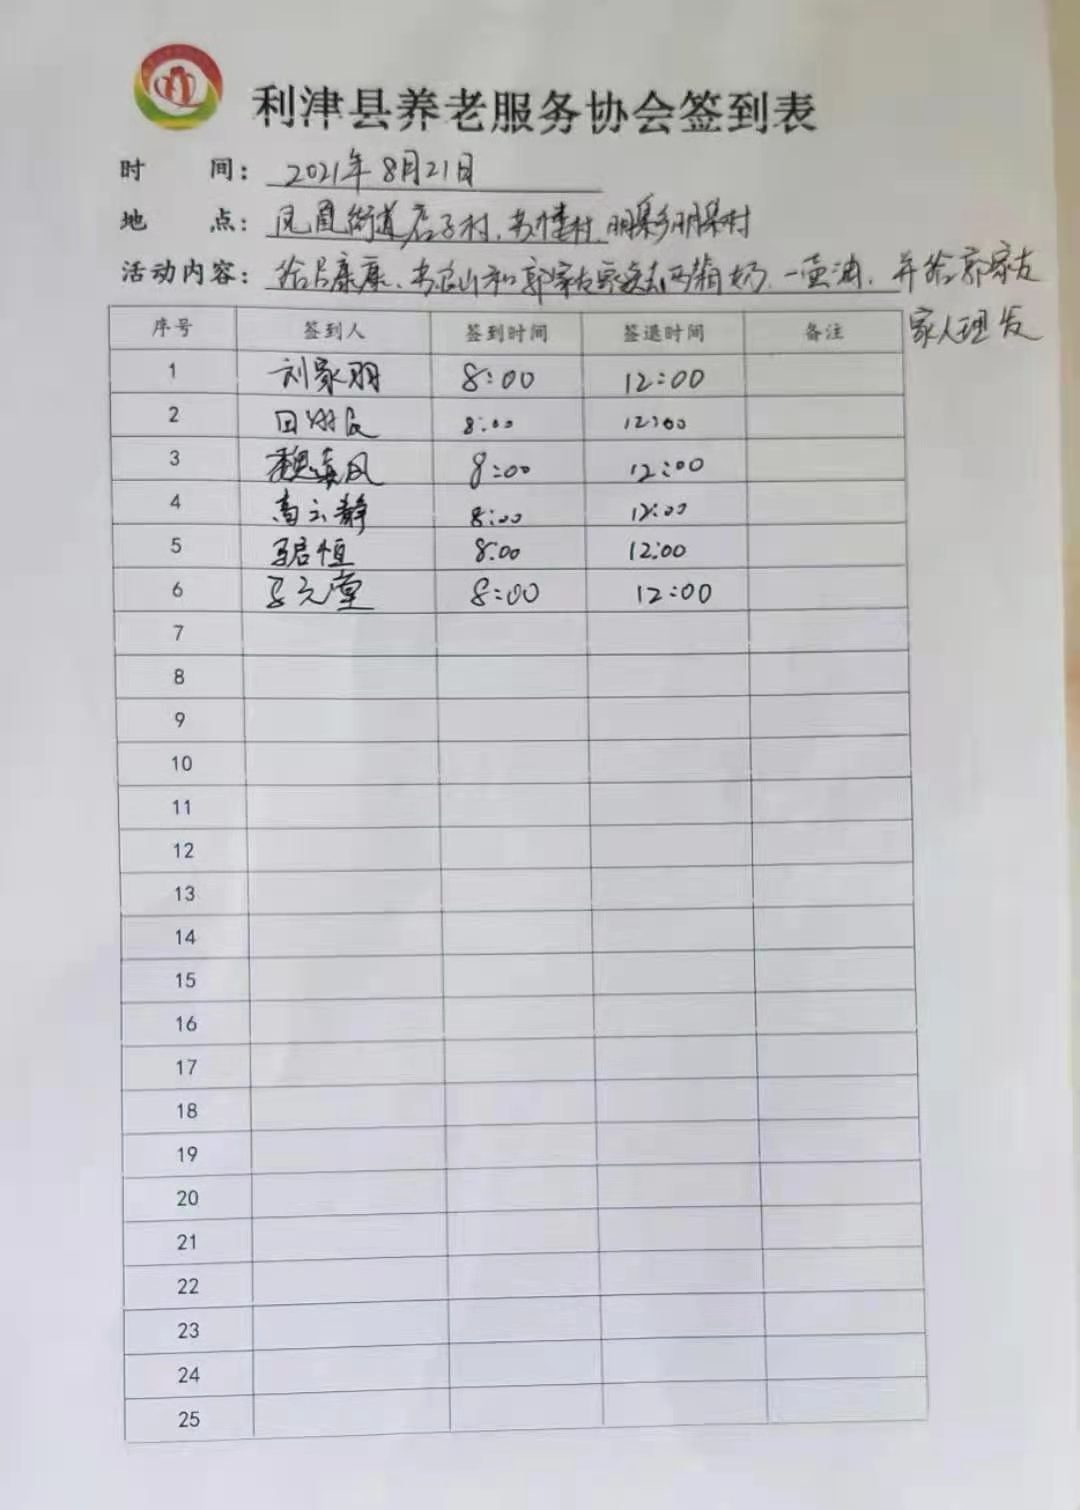 利津县养老服务协会签到表
时 间： 2021年8月21日
地 点： 凤凰街道店子村、 村、明集乡明集村
活动内容： 给吕康康、 山和郭家友家送去两箱奶、一壶油，并给郭家友
家人理发
序号 签到人 签到时间 签退时间 备注
1 刘家羽 8:00 12:00
2 田 8:00 12:00
3 魏 风 8:00 12:00
4 高云静 8:00 12:00
5 恒 8:00 12:00
6 元堂 8:00 12:00
7
8
9
10
11
12
13
14
15
16
17
18
19
20
21
22
23
24
25